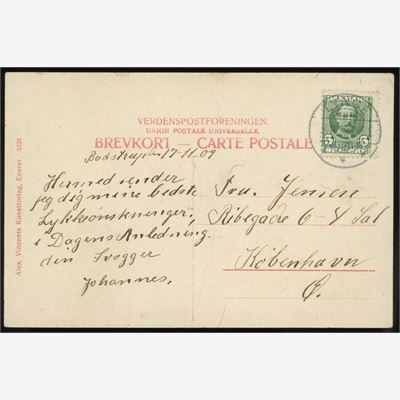 VERDENSPOSTFORENINGEN.
UNION POSTALE UNIVERSELLE.
BREVKORT — CARTE POSTALE
Alex. Vincents Kunstforlag, Eneret 3225
5 5
17-11 09
Hermed sender
jeg dig mine bedste
Lykkeønskninger,
i Dagens Anledning.
den
Johannes.
Fru. Jensen
Ribegade 6-4 Sal
København
Ø.